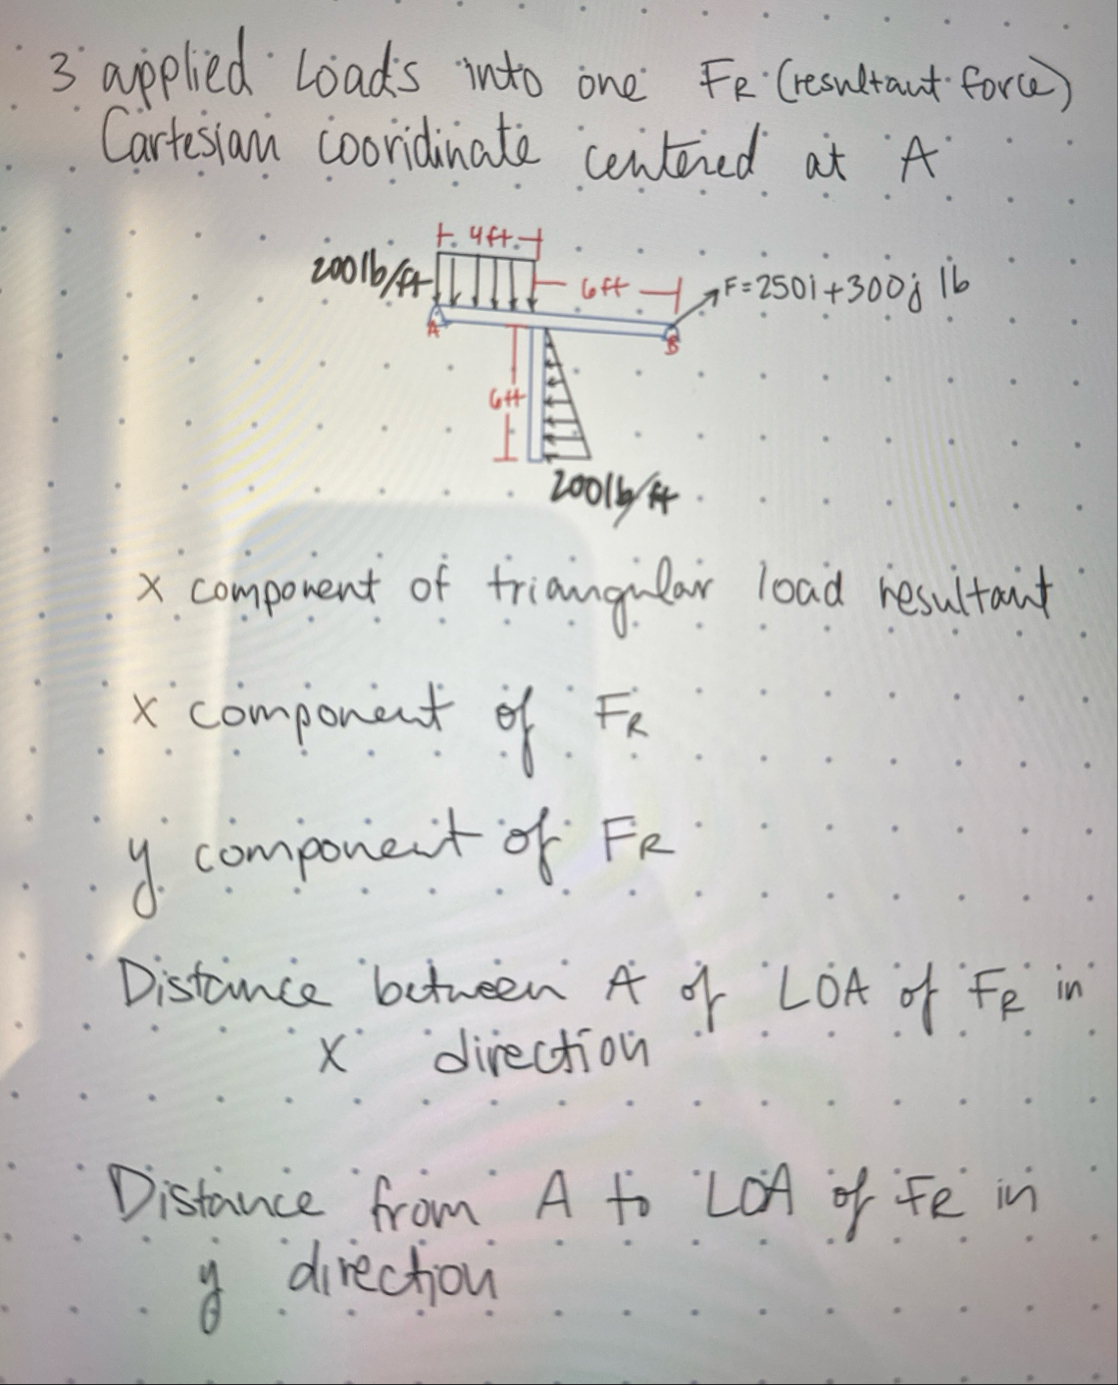 3 applied Loads into one FR (resultant force)
Cartesian cooridinate centered at A
4ft
200lb/ft
6ft
F=250i+300j lb
A
B
6ft
200lb/ft
x component of triangular load resultant
x component of FR
y component of FR
Distance between A of LOA of FR in
x direction
Distance from A to LOA of FR in
y direction